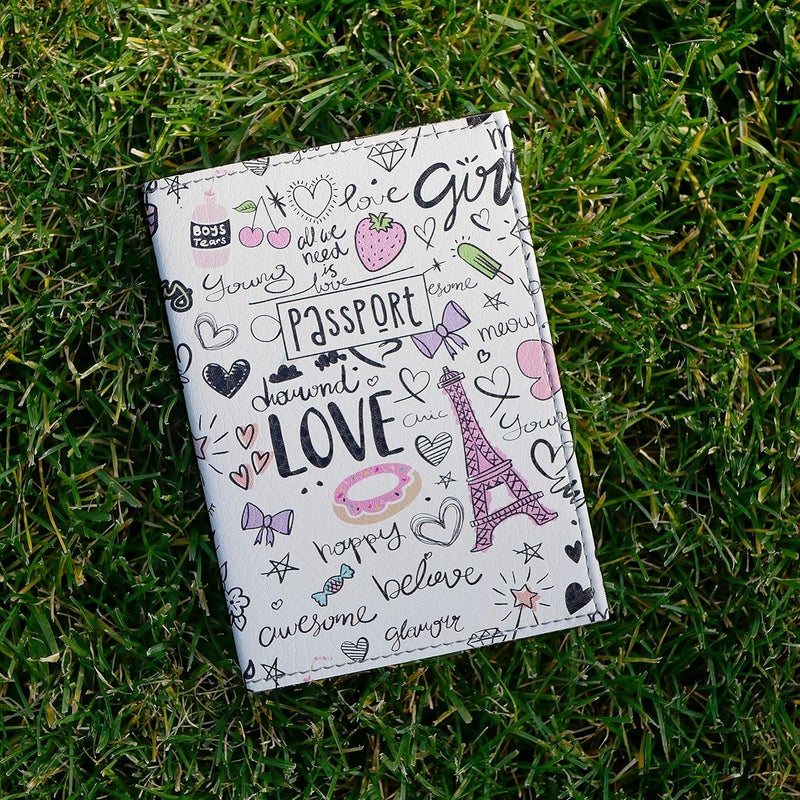 love
girl
BOYS
Tears
all we
need
is
love
Young
esome
PASSPORT
meow
diamond
chic
Young
LOVE
happy
believe
awesome
glamour